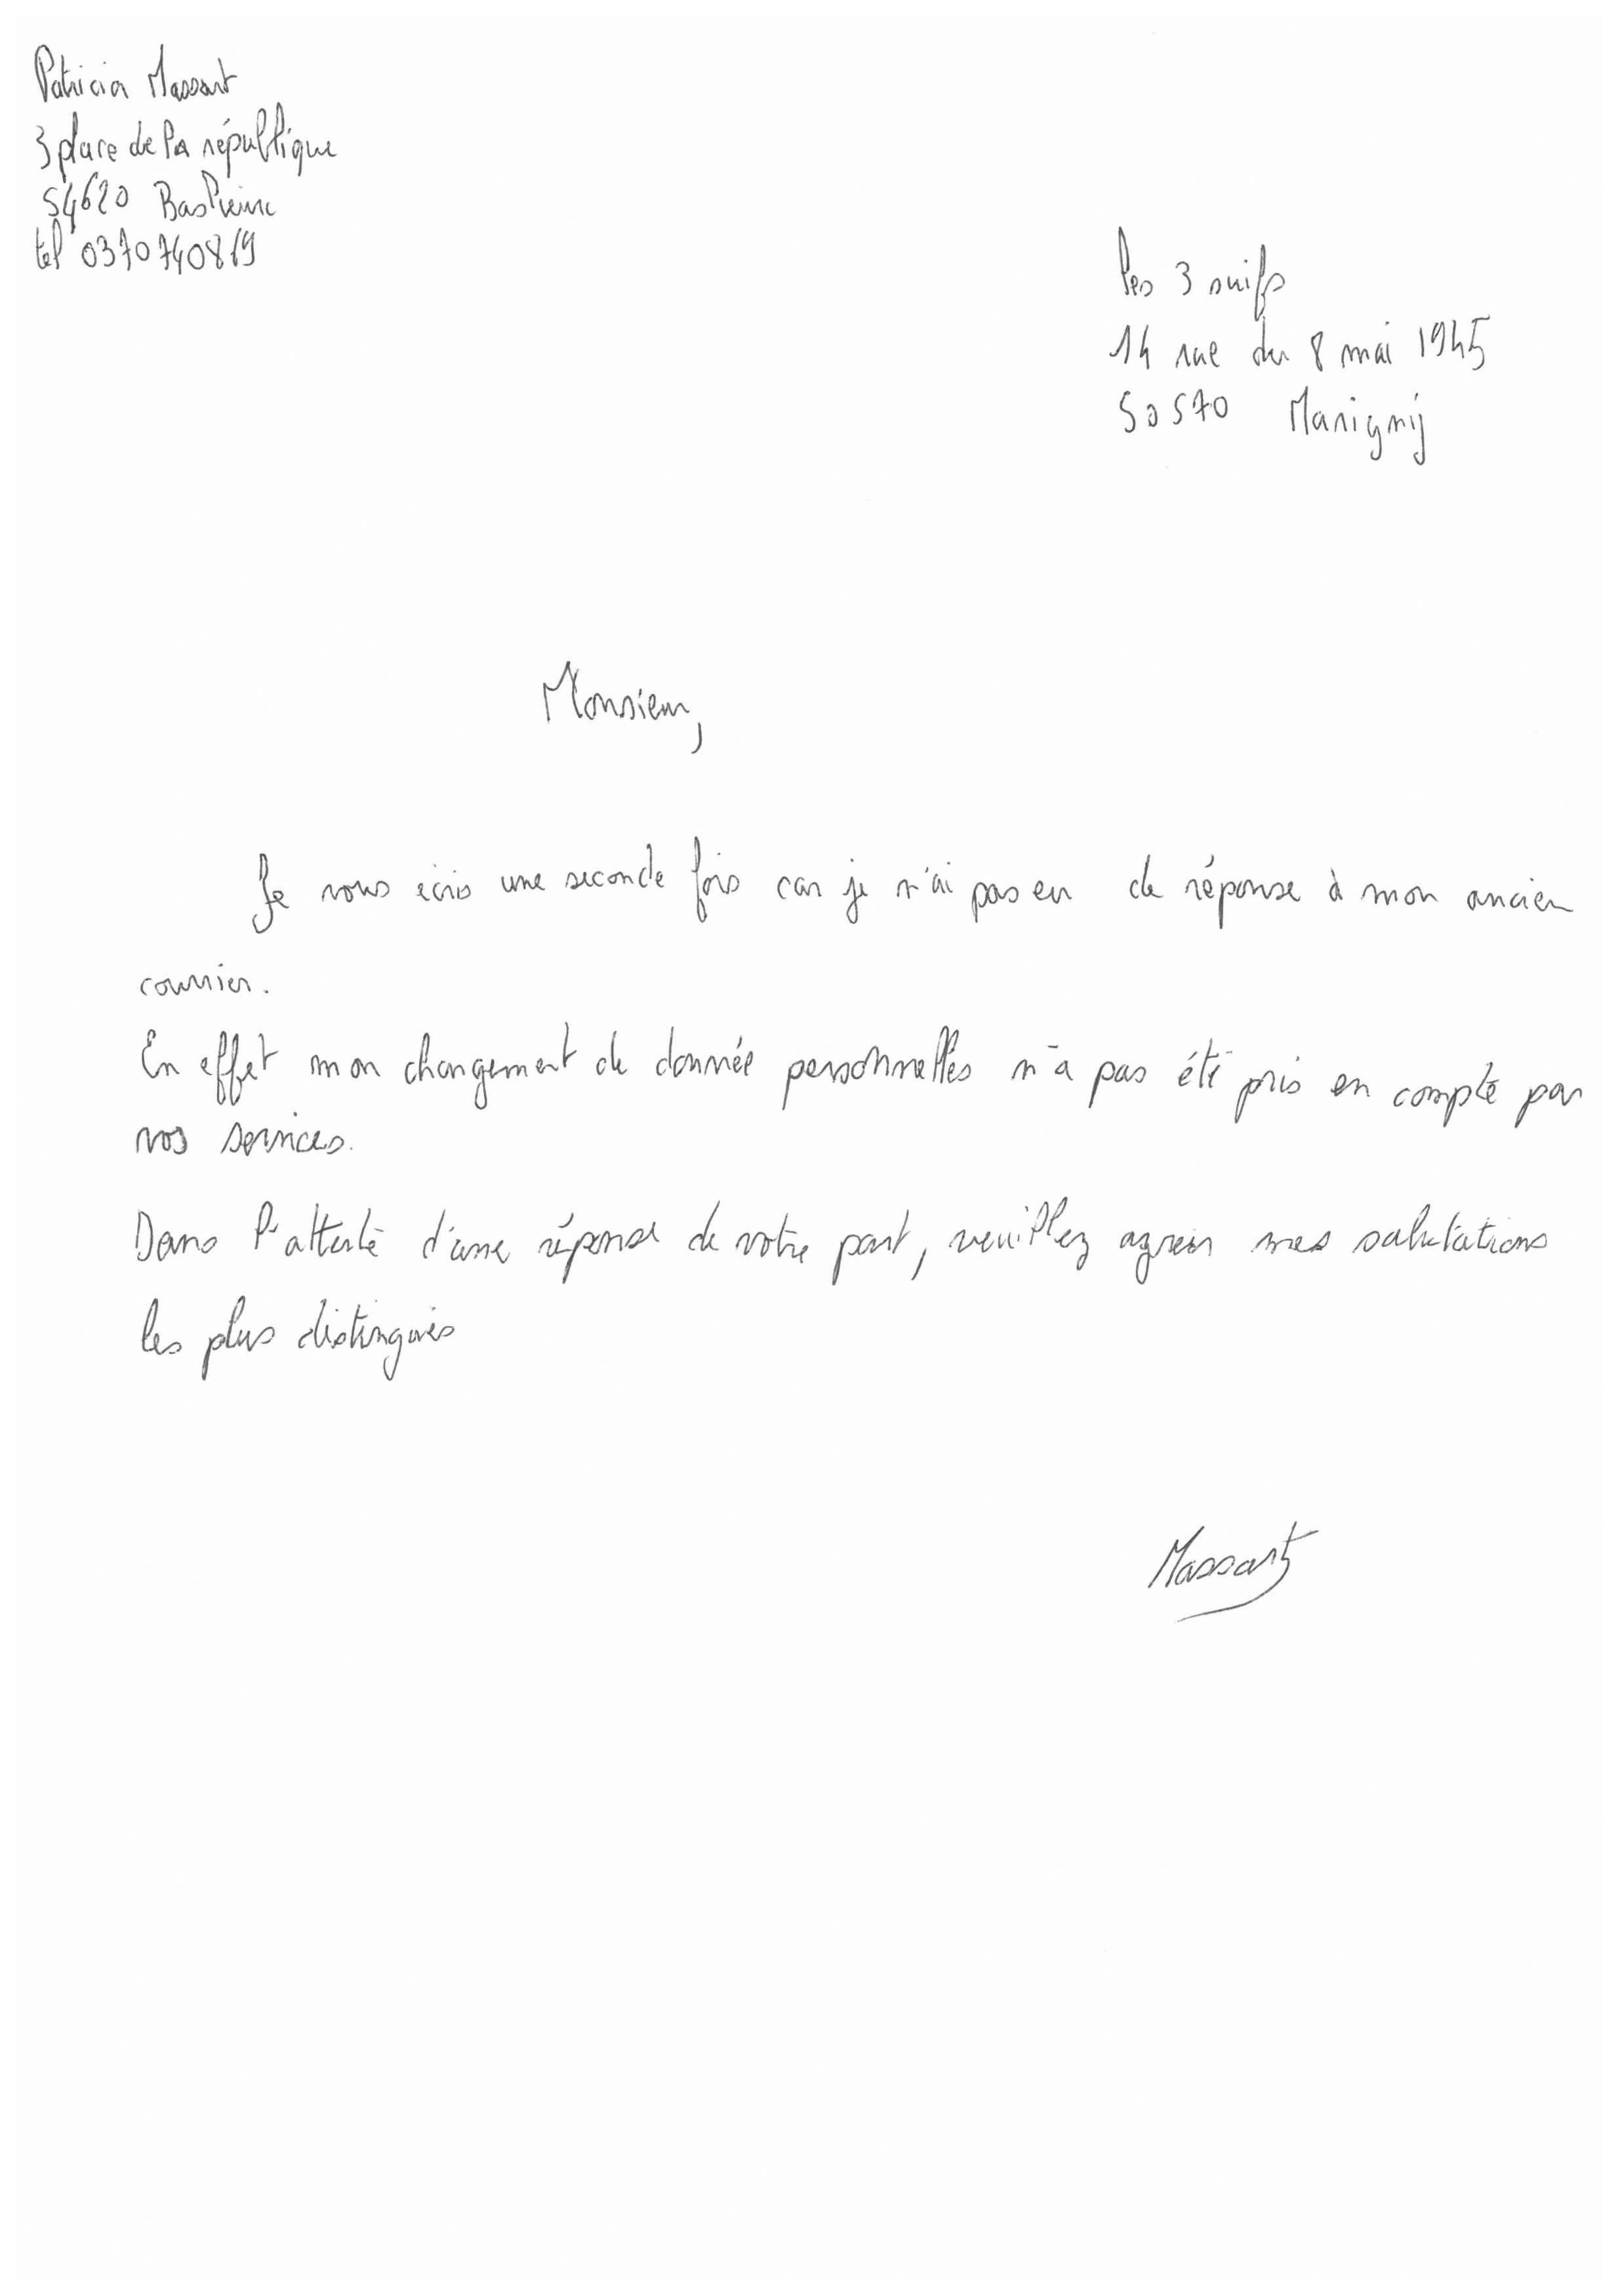 Patricia Massart
3 place de la république
54620 Baslieux
tel 0370740819
les 3 suifs
14 rue du 8 mai 1945
50570 Marigny
Monsieur,
Je vous écris une seconde fois car je n'ai pas eu de réponse à mon ancien
courrier.
En effet mon changement de donnée personnelles n'a pas été pris en compte par
vos services.
Dans l'attente d'une réponse de votre part, veuillez agréer mes salutations
les plus distingués
Massart